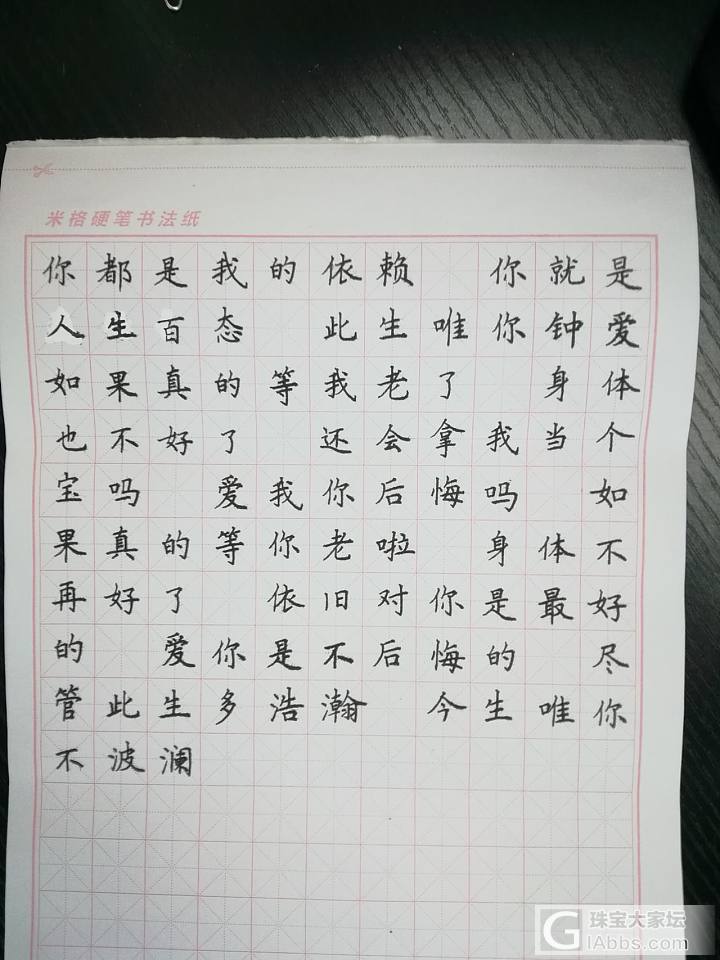 米格硬笔书法纸
你都是我的依赖 你就是
人生百态 此生唯你钟爱
如果真的等我老了 身体
也不好了 还会拿我当个
宝吗 爱我你后悔吗 如
果真的等你老啦 身体不
再好了 依旧对你是最好
的 爱你是不后悔的 尽
管此生多浩瀚 今生唯你
不波澜
珠宝大家坛
GIAbbs.com